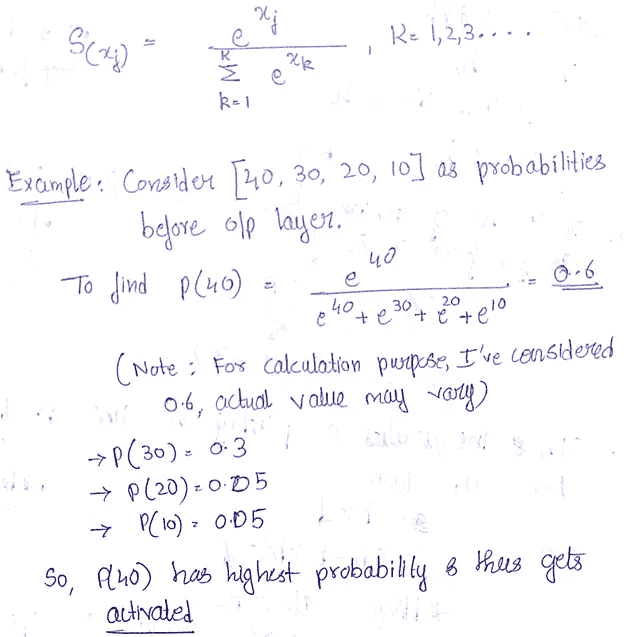 S(xj) = e^xj / K Σ k=1 e^xk , K= 1,2,3....
Example: Consider [40, 30, 20, 10] as probabilities
before o/p layer.
To find p(40) = e^40 / e^40 + e^30 + e^20 + e^10 = 0.6
(Note : For calculation purpose, I've considered
0.6, actual value may vary)
→ P(30) = 0.3
→ P(20) = 0.05
→ P(10) = 0.05
So, P(40) has highest probability & thus gets
activated